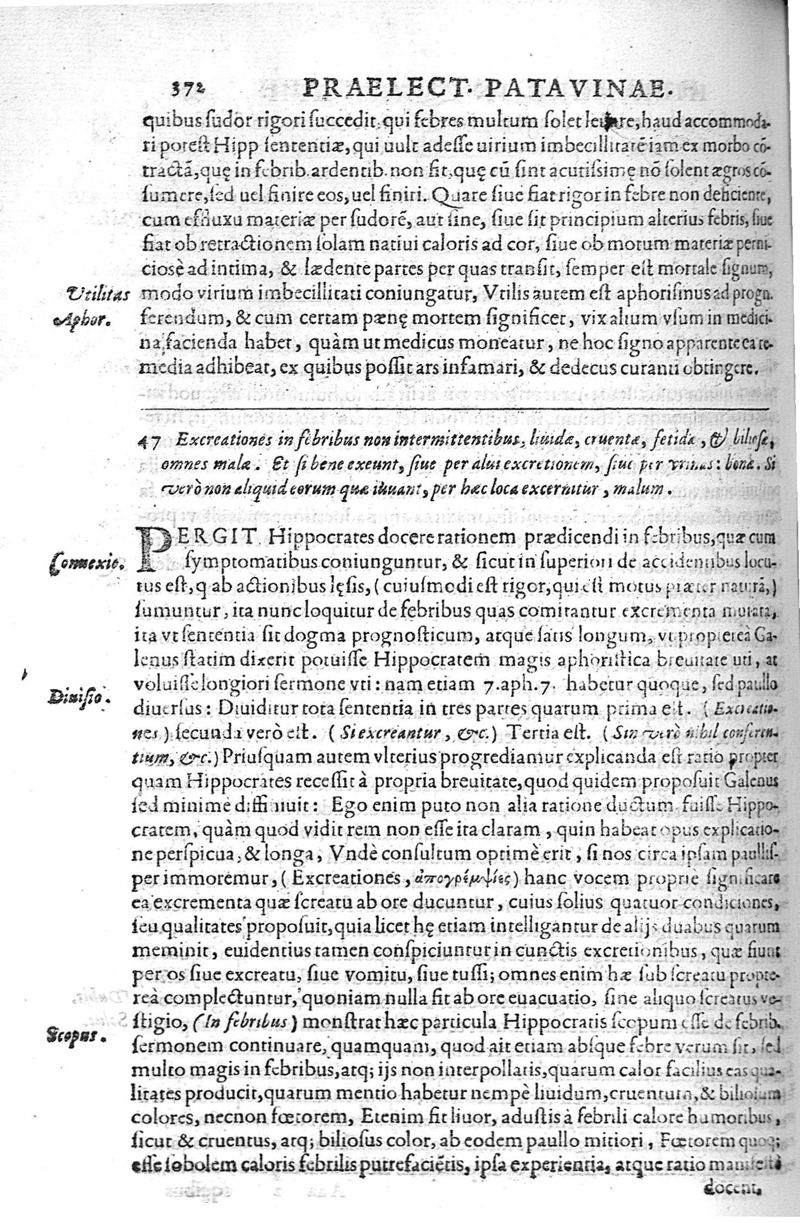 372 PRAELECT. PATAVINAE.
quibus sudor rigori succedit, qui febres multum solet leuare, haud accommoda-
ri potest Hipp sententiæ, qui uult adesse uirium imbecillitatē iam ex morbo cō-
tractā, quę in febrib. ardentib. non fit, quę cū sint acutissimę nō solent ægros cō-
sumere, sed uel finire eos, uel finiri. Quare siue fiat rigor in febre non deficiente,
cum efluxu materiæ per sudorē, aut sine, siue sit principium alterius febris, siue
fiat ob retractionem solam natiui caloris ad cor, siue ob motum materiæ perni-
ciosè ad intima, & lædente partes per quas transit, semper est mortale signum,
Vtilitas modo virium imbecillitati coniungatur, Vtilis autem est aphorismus ad progn.
Aphor. ferendum, & cum certam pænę mortem significet, vix alium vsum in medici-
na facienda habet, quàm ut medicus moneatur, ne hoc signo apparente ea re-
media adhibeat, ex quibus possit ars infamari, & dedecus curanti obtingere.
47 Excreationes in febribus non intermittentibus, liuidæ, cruentæ, fetidæ, & biliosæ,
omnes malæ. Et si bene exeunt, siue per alui excretionem, siue per vrinas: bonæ. Si
vero non aliquid eorum quæ iuuant, per hæc loca excernitur, malum.
PERGIT Hippocrates docere rationem prædicendi in febribus, quæ cum
Connexio. symptomatibus coniunguntur, & sicut in superiori de accidentibus locu-
tus est, q ab actionibus lęsis, (cuiusmodi est rigor, qui est motus præter naturā,)
sumuntur, ita nunc loquitur de febribus quas comitantur excrementa mutata,
ita vt sententia sit dogma prognosticum, atque satis longum, vt propterea Ga-
lenus statim dixerit potuisse Hippocratem magis aphoristica breuitate uti, at
voluisse longiori sermone vti: nam etiam 7. aph. 7. habetur quoque, sed paullo
Diuisio. diuersus: Diuiditur tota sententia in tres partes quarum prima est. (Excreatio-
nes) secunda verò est. (Si excreantur, &c.) Tertia est. (Sin vero nihil conferen-
tium, &c.) Priusquam autem vlterius progrediamur explicanda est ratio propter
quam Hippocrates recessit à propria breuitate, quod quidem proposuit Galenus
sed minime diffinuit: Ego enim puto non alia ratione ductum fuisse Hippo-
cratem, quàm quod vidit rem non esse ita claram, quin habeat opus explicatio-
ne perspicua, & longa, Vndè consultum optimè erit, si nos circa ipsam paullis-
per immoremur, (Excreationes, ἀπογρέμψιες) hanc vocem proprie significare
ea excrementa quæ screatu ab ore ducuntur, cuius solius quatuor condiciones,
seu qualitates proposuit, quia licet hę etiam intelligantur de alijs duabus quarum
meminit, euidentius tamen conspiciuntur in cunctis excretionibus, quæ fiunt
per os siue excreatu, siue vomitu, siue tussi; omnes enim hæ sub screatu propte-
reà complectuntur, quoniam nulla fit ab ore euacuatio, sine aliquo screatus ve-
stigio, (In febribus) monstrat hæc particula Hippocratis scopum esse de febrib.
Scopus. sermonem continuare, quamquam, quod ait etiam absque febre verum sit, sed
multo magis in febribus, atq; ijs non interpollatis, quarum calor facilius eas qua-
litates producit, quarum mentio habetur nempè liuidum, cruentum, & biliosum
colores, necnon fœtorem, Etenim fit liuor, adustis à febrili calore humoribus,
sicut & cruentus, atq; biliosus color, ab eodem paullo mitiori, Fœtorem quoq;
esse sobolem caloris febrilis putrefaciētis, ipsa experientia, atque ratio manifestè
docent,